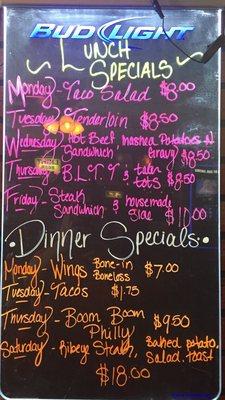 BUD LIGHT
~ LUNCH
SPECIALS ~
Monday - Taco Salad $8.00
Tuesday - Tenderloin $8.50
Wednesday - Hot Beef mashed Potatoes N
Sandwhich Gravy $8.50
Thursday - B.L.T & tater
tots $8.50
Friday - Steak & housemade
Sandwhich $10.00
• Dinner Specials •
Monday - Wings Bone-in
Boneless $7.00
Tuesday - Tacos $1.75
Thursday - Boom Boom
Philly $9.50
Saturday - Ribeye Steak, Baked potato,
Salad. toast
$18.00